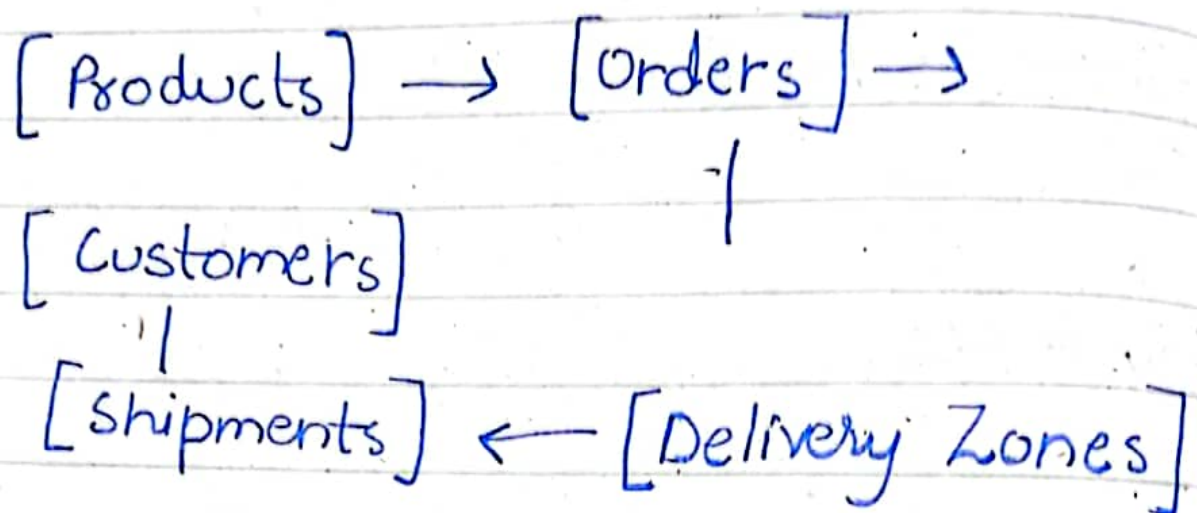 [Products] → [Orders] →
|
[Customers]
|
[Shipments] ← [Delivery Zones]